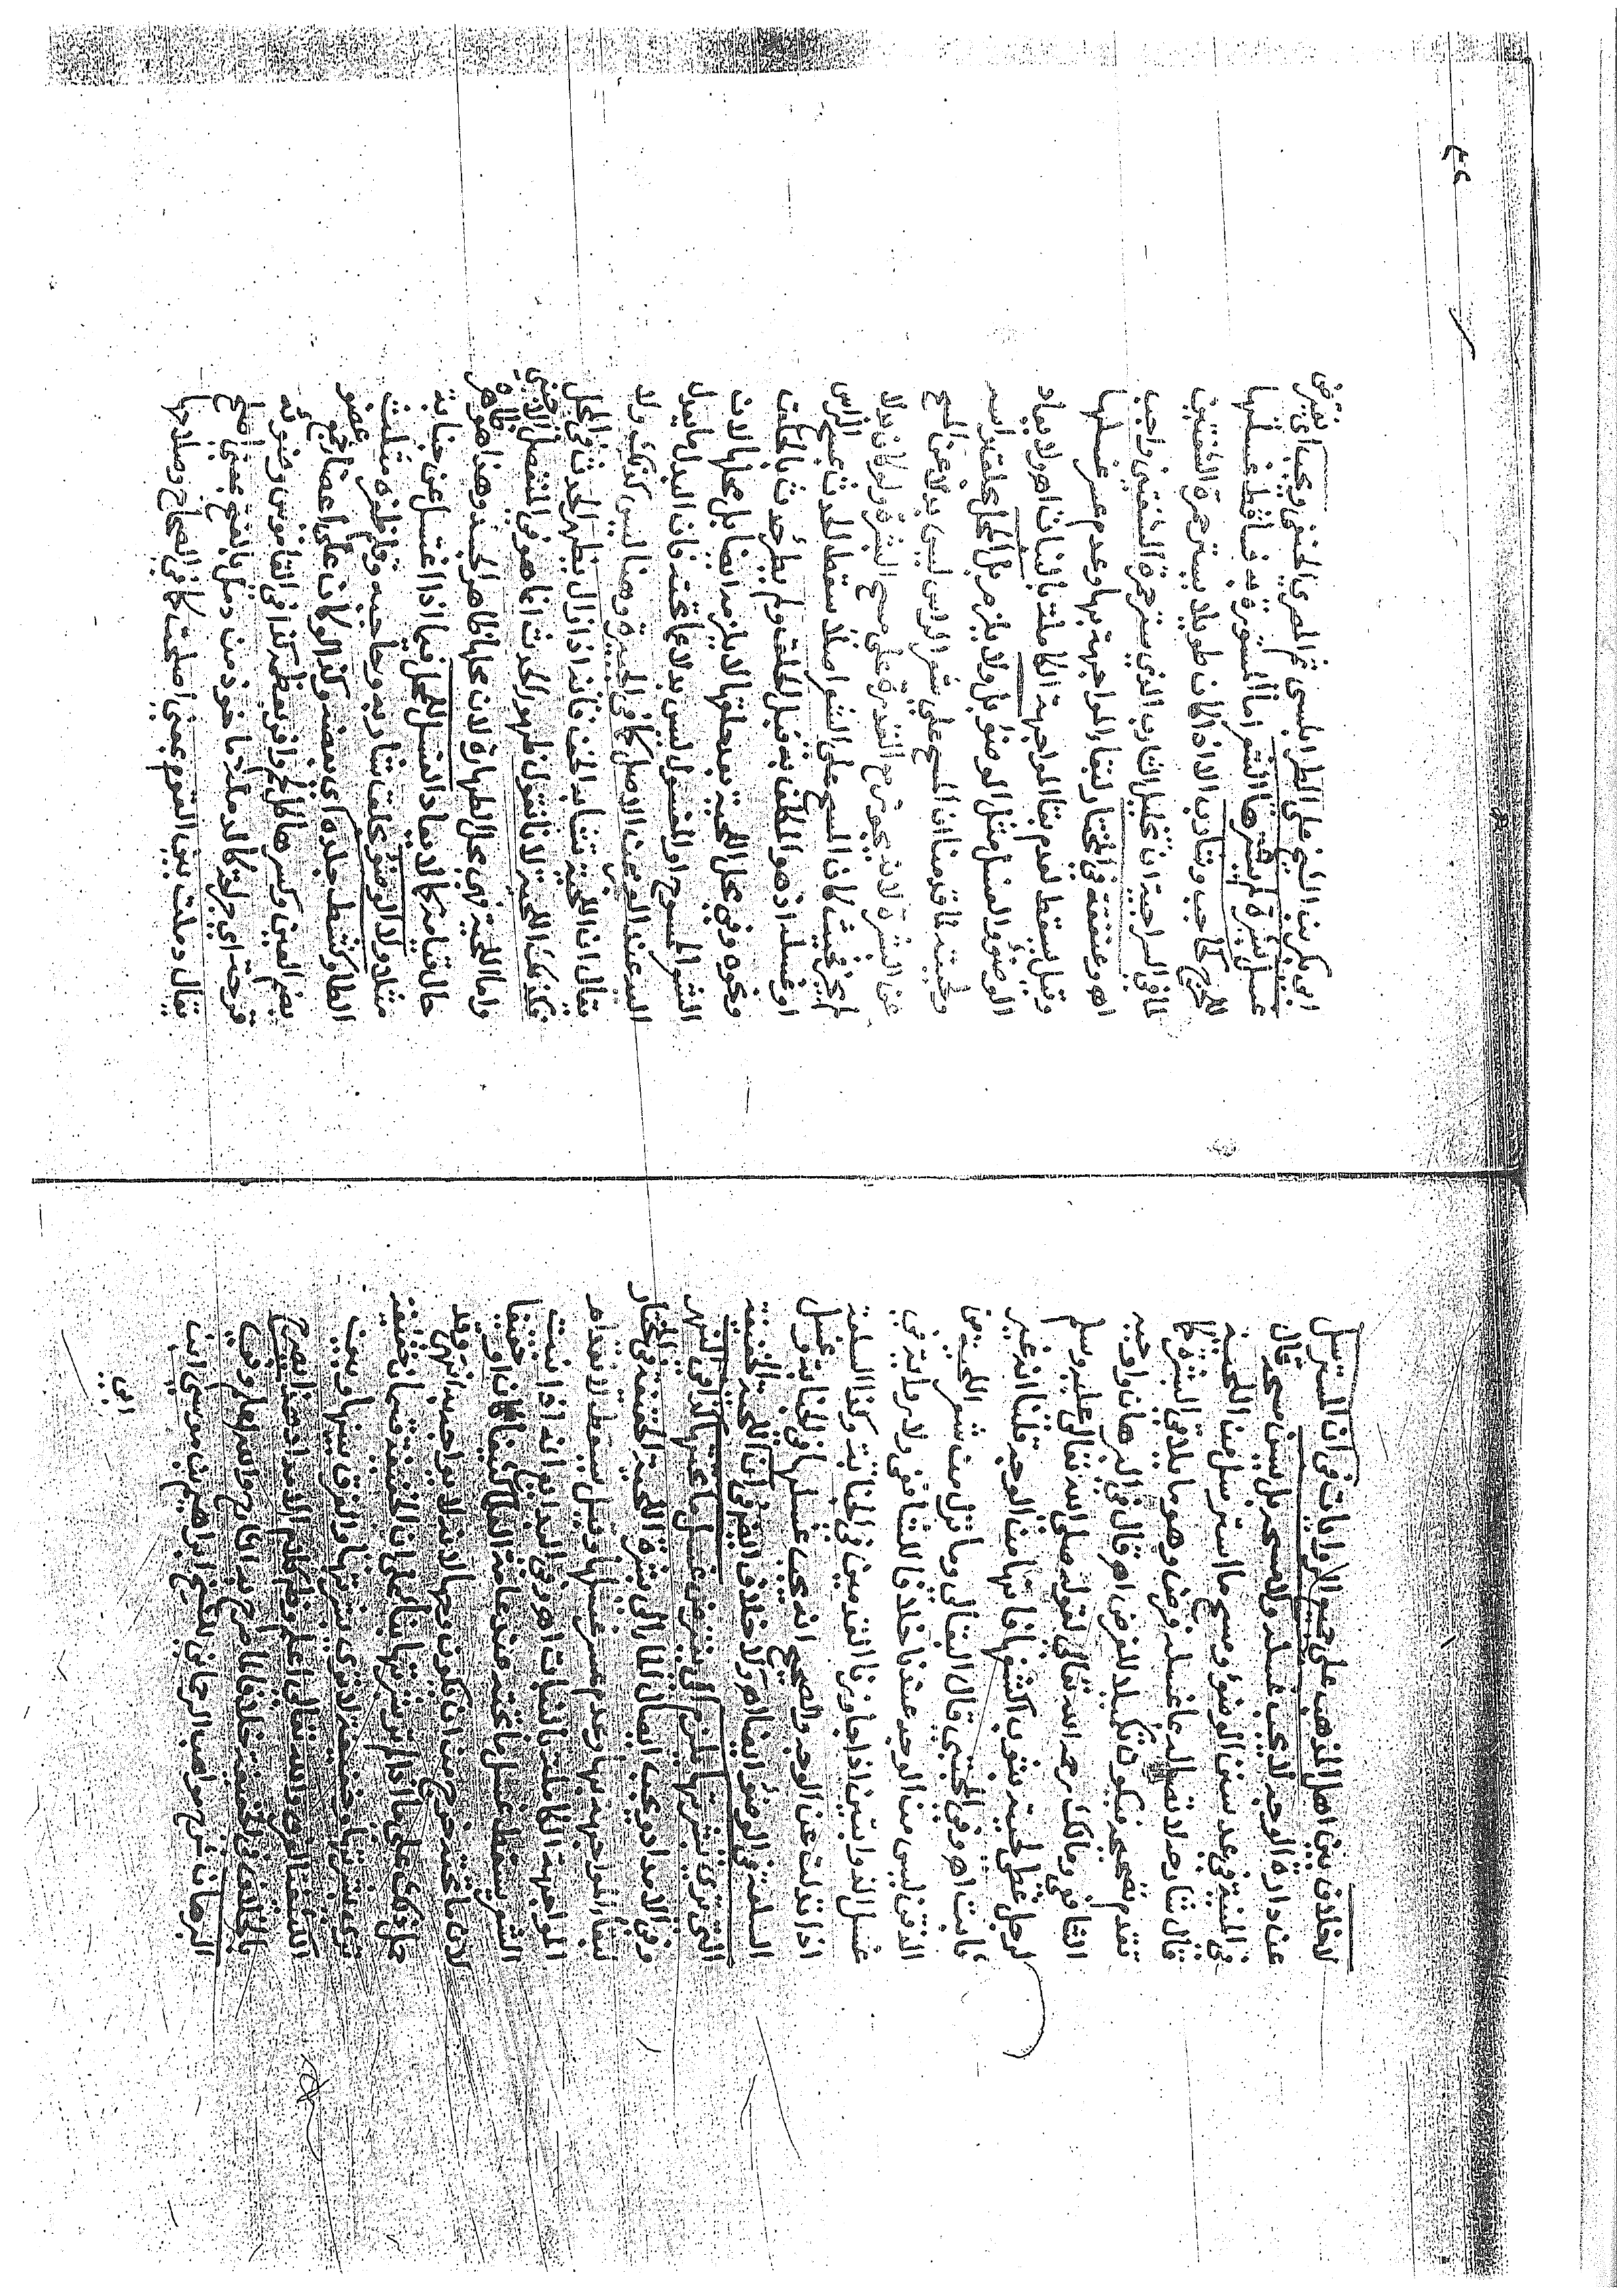 لاخلاف بين اهل المذهب على جميع الروايات في ان المسترسل
عن دائرة الوجه لا يجب غسله ولا مسحه بل يسن مسحه قال
في المنية في عد سنن الوضوء ومسح ما استرسل من اللحية
قال شارحه لاتصاله بما غسله فرض وهو ما يلاقي البشرة كما
تقدم تصحيحه فيكون تكميلا للفرض اهـ قال في البرهان واوجبه
الشافعي ومالك رحمه الله تعالى لقوله صلى الله تعالى عليه وسلم
لرجل غطى لحيته بثوب اكشفها فانها من الوجه قلنا انه غير
ثابت اهـ وفي المجتبى قال البقالي وما نزل من شعر اللحية من
الذقن ليس من الوجه عندنا خلافا للشافعي ولا رواية في
غسل الذوابتين اذا جاوزتا القدمين في الجنابة وكذا السلعة
اذا تدلت عن الوجه والصحيح انه يجب غسلها في الجنابة وغسل
السلعة في الوضوء ايضا اهـ ولا خلاف ايضا في ان اللحية الخفيفة
التي ترى بشرتها يلزم اي يفترض غسل ما تحتها كذا في النهر
وفي الامداد ويجب ايصال الماء الى بشرة اللحية الخفيفة في المختار
لبقاء المواجهة بها وعدم عسر غسلها وقيل يسقط لانعدام
المواجهة الكاملة بالنبات اهـ وفي البدائع انه اذا نبت
الشعر يسقط غسل ما تحته عند عامة العلماء كثيفا كان او خفيفا
لان ما تحته خرج من ان يكون وجها لانه لا يواجه به انتهى وقد
حمل ذلك على ما اذا لم تر بشرتها بناء على ان الخفيفة قسمان خفيفة
ترى بشرتها وخفيفة لا ترى بشرتها والفرق بينها وبين
الكثيفة العرف والله تعالى اعلم وفي كلام الامداد هذا تصريح
بالخلاف في الخفيفة خلاف ما صرح به والله اعلم وفي
البرهان شرح مواهب الرحمن للشيخ ابراهيم بن موسى ابن
ابي
ابي بكر بن الشيخ علي الطرابلسي ثم المصري الحنفي ويجب اي يفترض
غسل بشرة لم يسترها الشعر اما المستورة به فساقط غسلها
للحرج كحاجب وشارب الا اذا كان طويلا يستر حمرة الشفتين
لما في السراجية ان تخليل الشارب الذي يستر حمرة الشفتين واجب
اهـ وعنفقة في المختار لبقاء المواجهة بها وعدم عسر غسلها
وقيل يسقط لعدم بقاء المواجهة الكاملة بالنبات اهـ ولا يعاد
الوضوء والغسل مثل الوضوء بل ولا يلزم بل المحل بحلق راسه
ولحيته لما قدمنا ان المسح على شعر الراس ليس بدلا عن المسح
عن البشرة لانه يجوز مع القدرة على مسح البشرة ولو كان بدلا
لم يجز بحيث كان المسح على الشعر اصلا سقط الحدث بمسح الراس
او غسله اذ هو المكلف به قبل الحلق ولم يطرأ حدث بالحلق
ونحوه وفي محل اللحية بعد حلقها لا يلزمه ايضا بل محلها لان
الشعر الممسوح او المغسول ليس بدلا عما تحته فان البدل ما يعدل
اليه عند العجز عن الاصل كما في الجبيرة وهنا ليس كذلك ولا
يقال ان اللحية تشابه الخف فانه اذا زال يظهر الحدث في المحل
فكذلك اللحية لانا نقول ظهور الحدث انما هو في المنفصل الاجنبي
واما اللحية فهي محل الطهارة لان محلها ظاهر الجسد وهذا هو ظاهر
حالة قيامه كما لا يعاد الغسل للمحل فيما اذا اغتسل عن جنابة
مثلا ولا الوضوء بحلق شاربه وحاجبه وقلم ظفره مثلث
الظا وكشط جلده اي بعضه وكذا لو كان على اعضاء وضوئه
بضم العين وكسرها كل لحم وافر بعظمه كذا في القاموس وضوئه
قرحة اي جراحة كالدملة ماخوذ من دمل بالفتح بمعنى اصلح
يقال دملت بين القوم بمعنى اصلحت كما في الصحاح وصلاحها